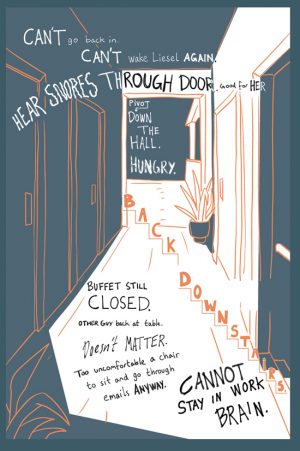 CAN'T go back in.
CAN'T wake Liesel AGAIN.
HEAR SNORES THROUGH DOOR. Good for HER
PIVOT
DOWN
THE
HALL.
HUNGRY.
BACK DOWNSTAIRS
BUFFET STILL
CLOSED.
OTHER GUY back at table.
Doesn't MATTER.
Too uncomfortable a chair
to sit and go through
emails ANYWAY.
CANNOT
STAY IN WORK
BRAIN.